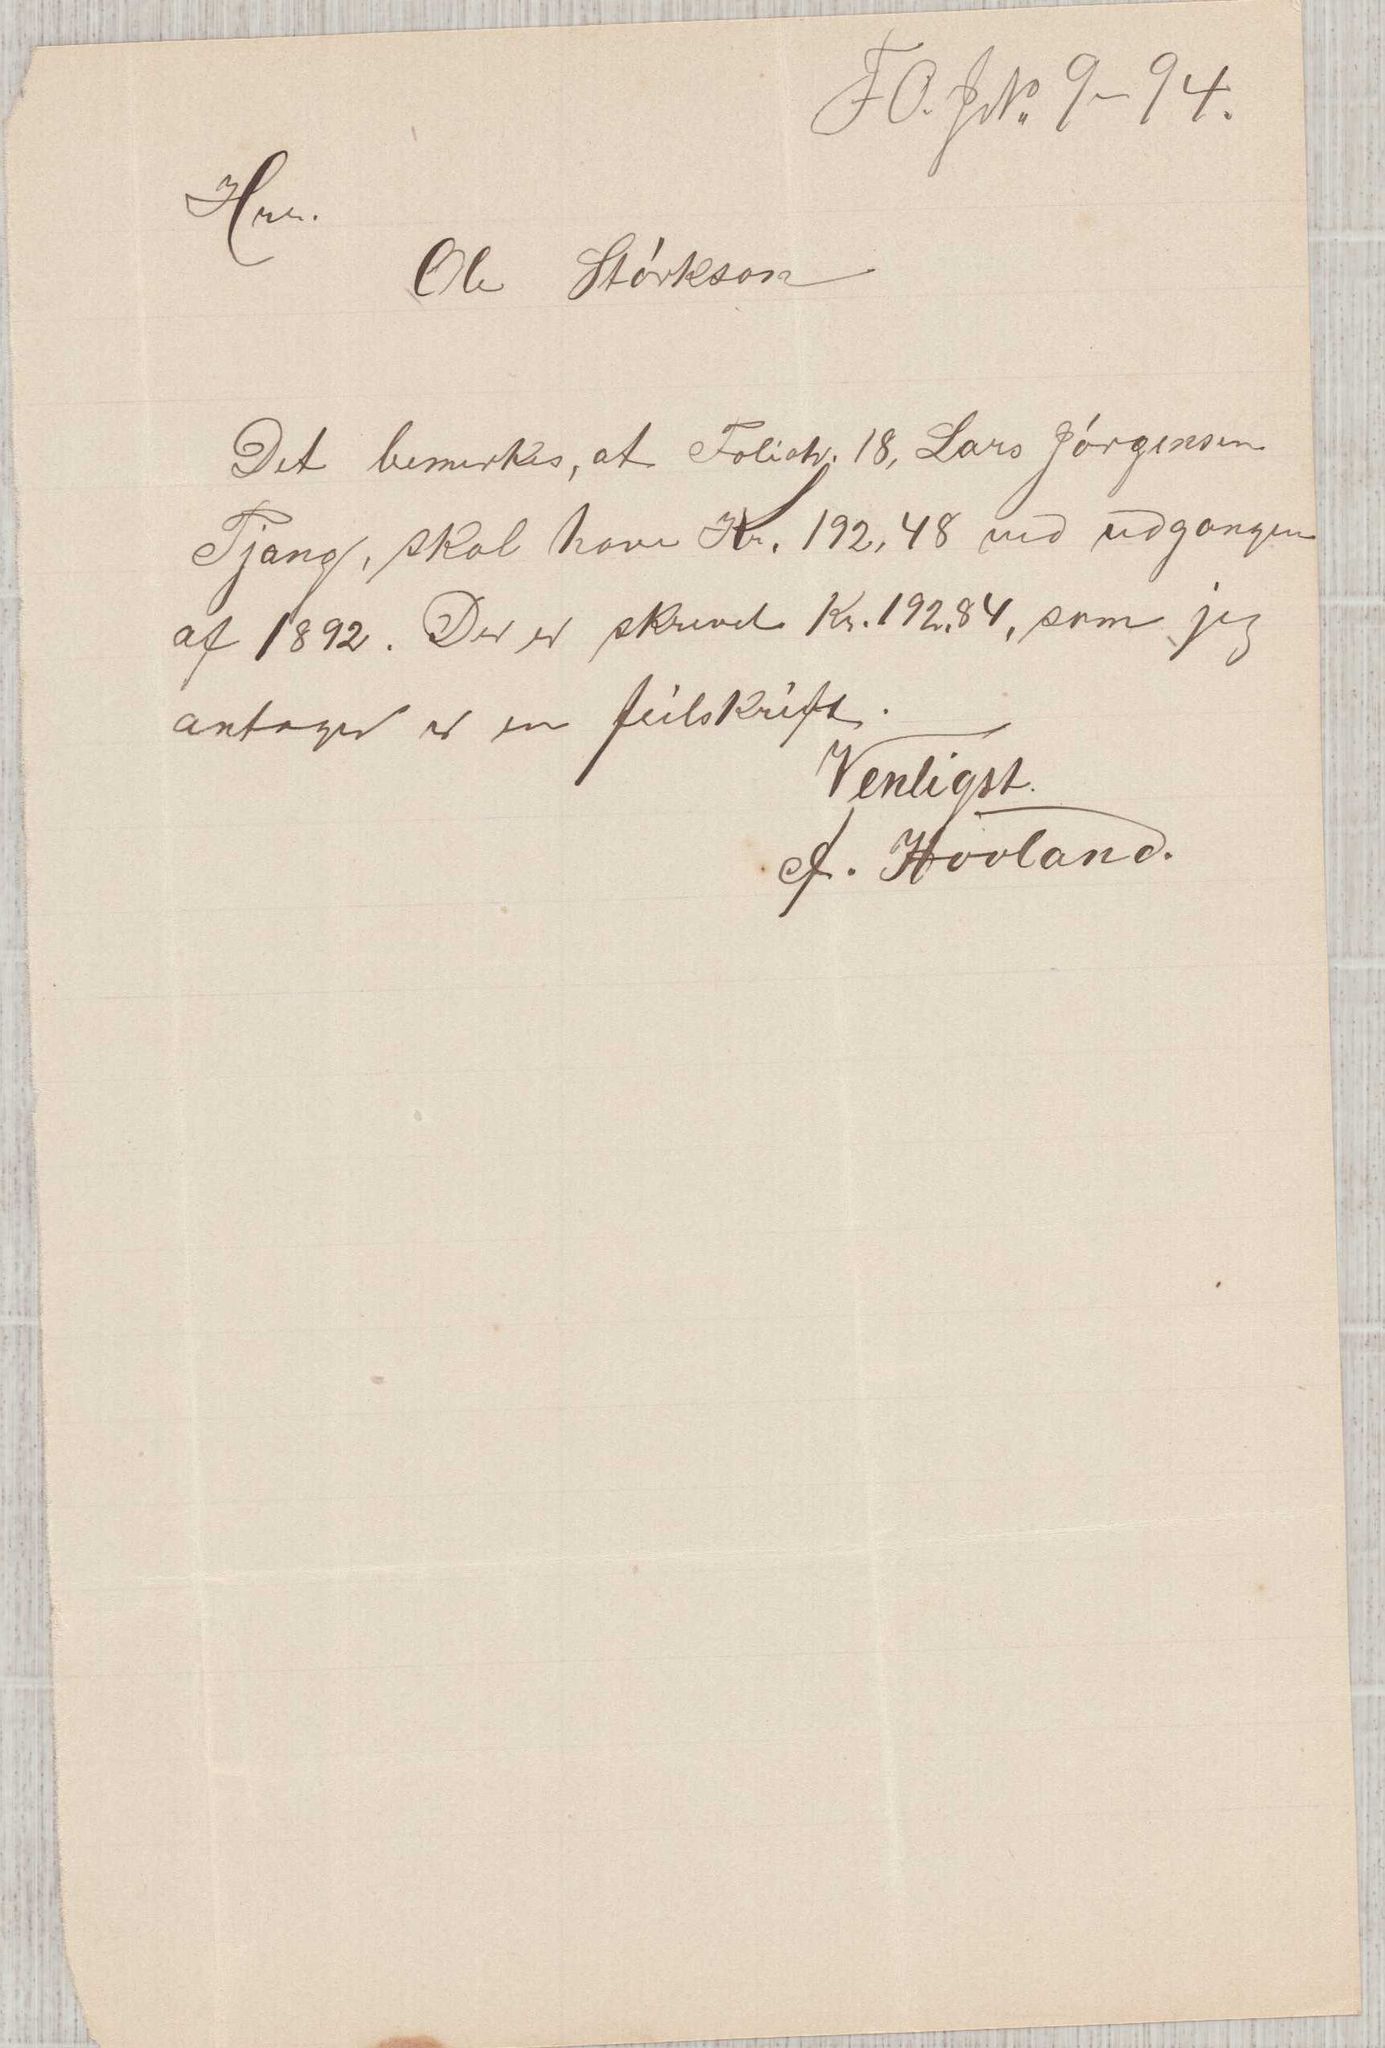 F O. JN. 9-94.
Hrr.
Ole Størkson
Det bemerkes, at Folio 18, Lars Jørgensen
Tjang, skal have Kr. 192,48 ved udgangen
af 1892. Der er skrevet Kr. 192,84, som jeg
antager er en feilskrift.
Venligst.
J. Hovland.